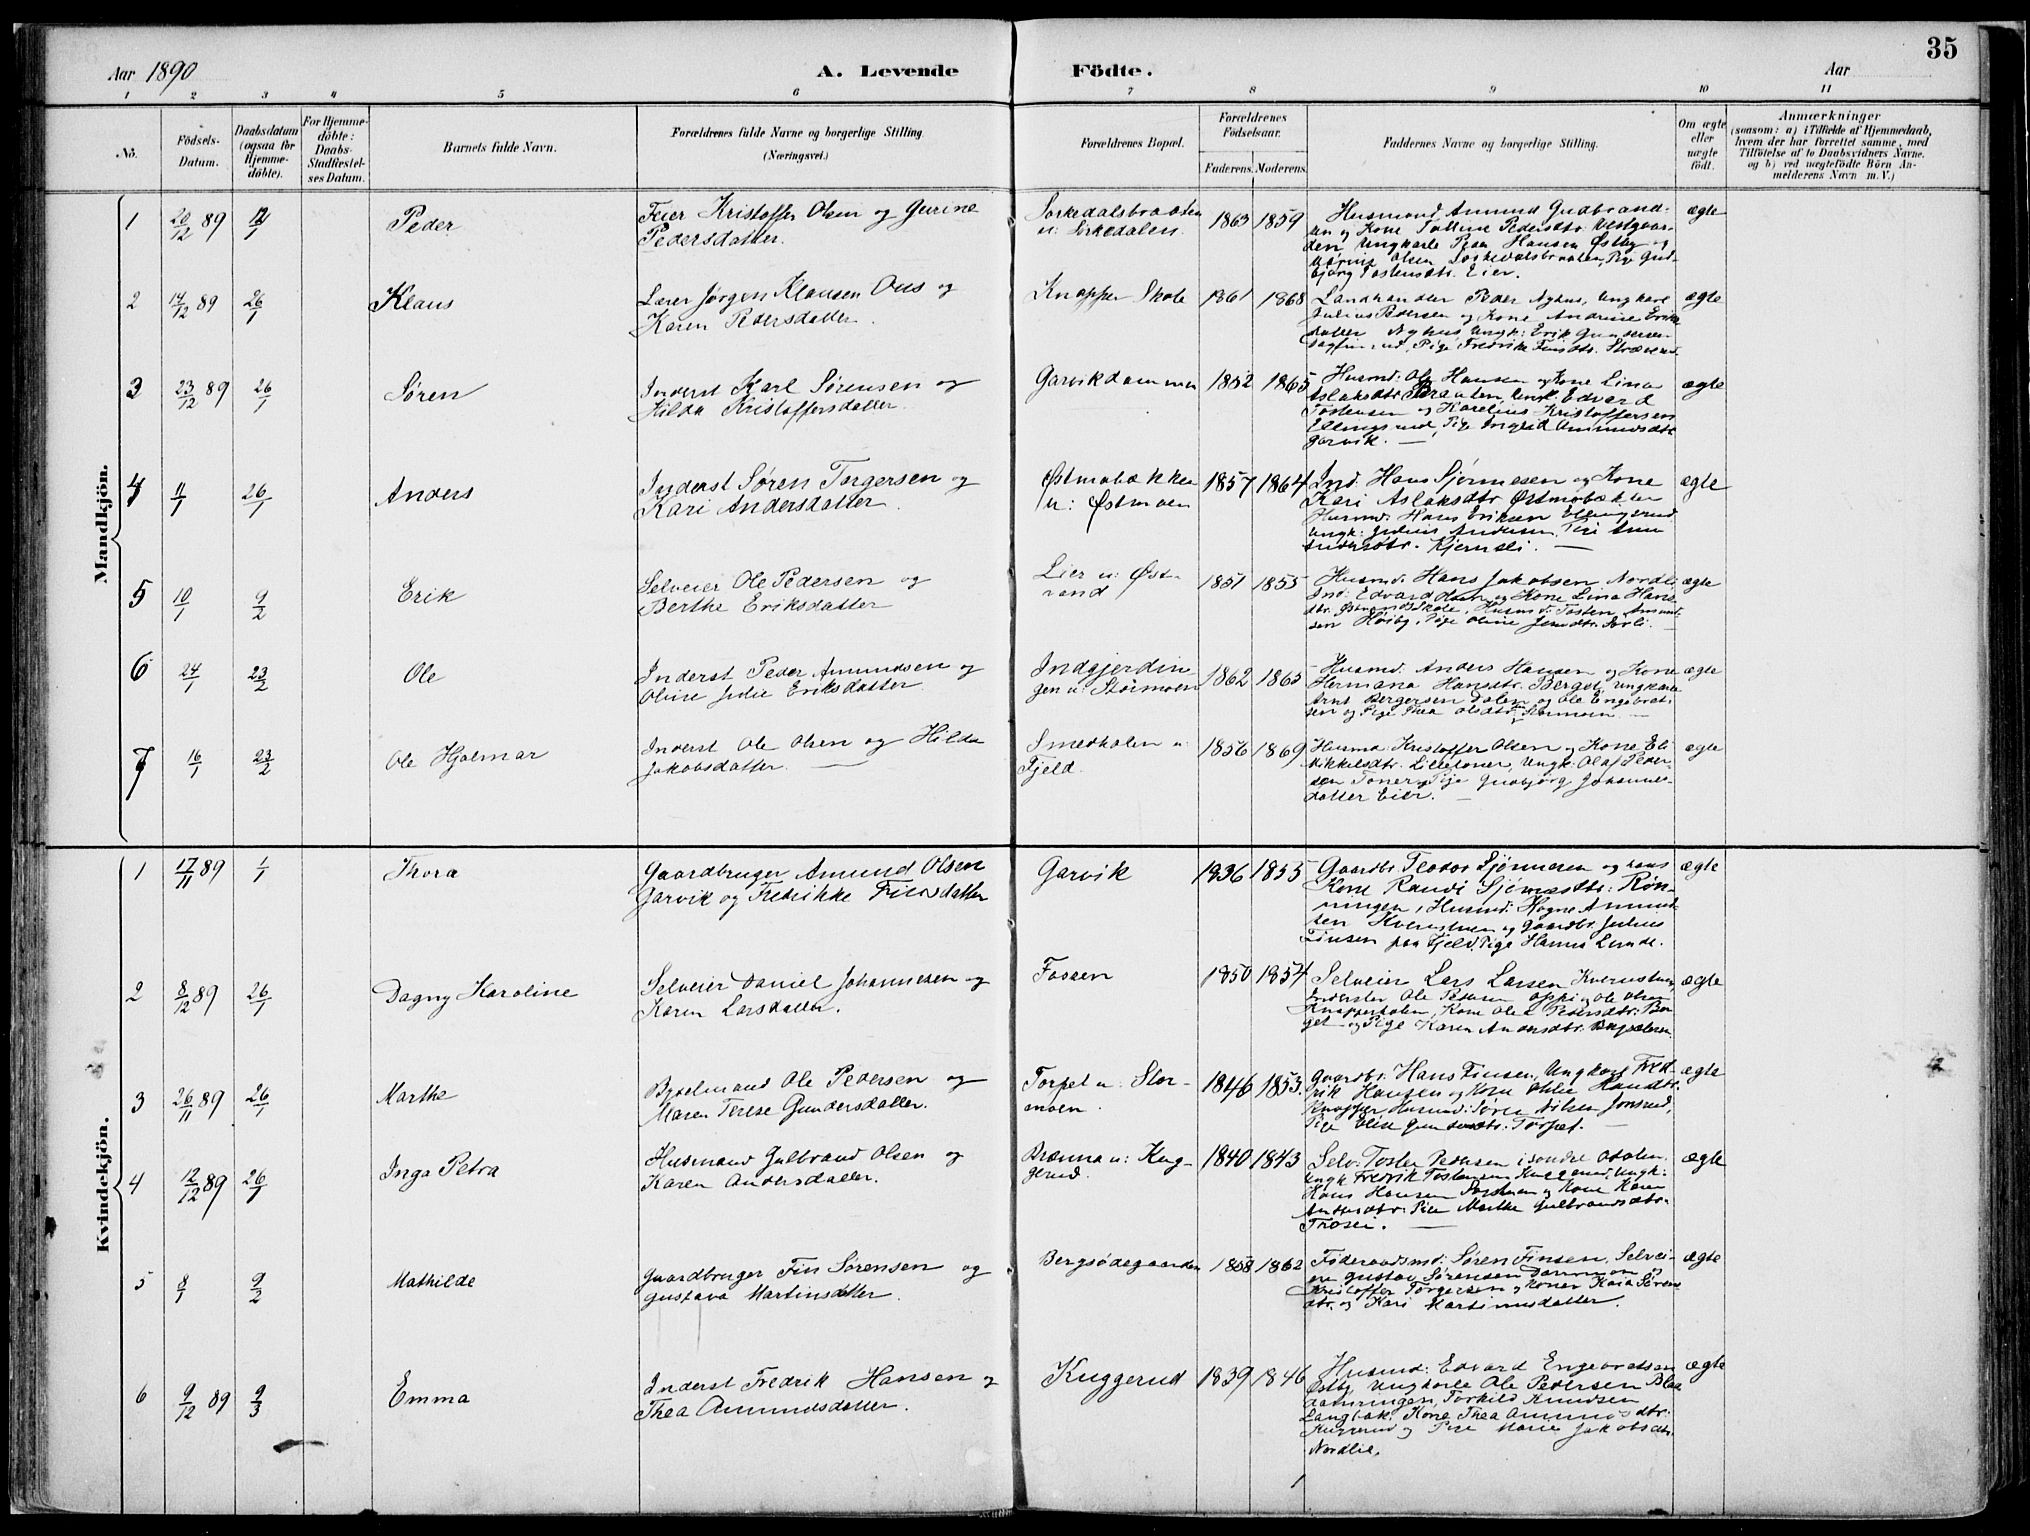 35
Aar 1890
A. Levende Födte.
Aar
1 2 3 4 5 6 7 8 9 10 11
No.
Födsels-Datum.
Daabsdatum (ogsaa for Hjemme-döbte).
For Hjemme-döbte: Daabs-Stadfæstel-ses Datum.
Barnets fulde Navn.
Forældrenes fulde Navne og borgerlige Stilling.
(Næringsvei.)
Forældrenes Bopæl.
Forældrenes Födselsaar.
Faderens. Moderens.
Faddernes Navne og borgerlige Stilling.
Om ægte eller uægte födt.
Anmærkninger
(saasom: a) i Tilfælde af Hjemmedaab, hvem der har forrettet samme, med Tilföielse af to Daabsvidners Navne. og b) ved uægtefödte Börn An-melderens Navn m. V.)
Mandkjön.
1 20/12 89 12/1 Peder
Eier Kristoffer Olsen og Gurine
Pedersdatter.
Sørkedalsbraaten
u: Sørkedalen.
1863 1859
Husmand Amund Gudbrand-
sen og Kone Pedersdtr. Vestgaar-
den, Ungkarle Peder Hansen Østby og
Olsen Sørkedalsbraaten, Pige Gud-
bjørg Tostensdtr. Eier.
ægte
2 14/12 89 26/1 Klaus
Lærer Jørgen Klausen Ous og
Karen Pedersdatter.
Knapper Skole
1861 1868
Landhandler Peder Nyhus, Ungkarl
Julius Pedersen og Kone Andrine Eriks-
datter Nyhus, Ungk: Erik Gundersen
Pige Fredrike Finsdtr.
ægte
3 23/12 89 26/1 Søren
Inderst Karl Sørensen og
Hilda Kristoffersdatter.
Garvikdammen
1852 1865
Husmd: Ole Hansen og Kone Lina
Aslaksdtr. Braaten, Edvard
Tostensen og Karelius Kristoffersen
Ellingsrud, Pige Ingeld Amundsdtr.
Garvik.
ægte
4 11/1 26/1 Anders
Inderst Søren Torgersen og
Kari Andersdatter.
Østmobækken
u: Østmoen
1857 1864
Ind. Hans Sjønnesen og Kone
Kari Aslaksdtr. Østmobækken
Husmd: Hans Eriksen Ellingsrud
Ungk: Julius Andersen, Pige Anne
Andersdtr. Kjernsli.
ægte
5 10/1 9/2 Erik
Selveier Ole Pedersen og
Berthe Eriksdatter
Lier u: Øst-
rand
1851 1855
Husmd: Hans Jakobsen Nordli,
Ind: Edvard Olsen og Kone Lina Hans-
dtr. Østrand Skole, Husmd: Tosten Amund-
sen Høiby, Pige Oline Jensdtr. Sørli.
ægte
6 24/1 23/2 Ole
Inderst Peder Amundsen og
Oline Julie Eriksdatter
Indgjerdin
gen u: Stormoen
1862 1865
Husmd: Anders Hansen og Kone
Hermana Hansdtr. Berget, Ungkarle
Arnt Bergersen Dalen og Ole Engebret-
sen og Pige Thea Olsdtr. Stormoen.
ægte
7 16/1 23/2 Ole Hjalmar
Inderst Ole Olsen og Hilda
Jakobsdatter.
Smedholen u:
Fjeld.
1856 1869
Husmd: Kristoffer Olsen og Kone Eli
Mikkelsdtr. Lilletoner, Ungk: Olaf Peder-
sen Toner, Pige Gudbjørg Johannes-
datter Eier.
ægte
Kvindekjön.
1 17/11 89 1/1 Thora
Gaardbruger Amund Olsen
Garvik og Fredrikke Finsdatter
Garvik
1836 1855
Gaardbr: Teodor Sjønnesen og hans
Kone Randi Sjønnesdtr: Røn-
ningen, Husmd: Hogne Amund-
sen og Gaardbr. Julius
Finsen paa Fjeld, Pige Hanna Lunde.
ægte
2 8/12 89 26/1 Dagny Karoline
Selveier Daniel Johannesen og
Karen Larsdatter.
Fossen
1850 1854
Selveier Lars Larsen Kvernstuen,
Inderster Ole Pedersen Oppi og Ole Olsen
Knapperholen, Kone Olea Pedersdtr. Ber-
get og Pige Karen Andersdtr.
ægte
3 26/11 89 26/1 Marthe
Bygselmand Ole Pedersen og
Maren Terese Gundersdatter.
Torpet u: Stor-
moen.
1846 1853.
Gaardbr: Hans Finsen, Ungkarl Fred-
rik Hansen og Kone Othilie Hansdtr.
Knapper, Husmd: Søren Nilsen Jonsrud,
Pige Elise Gundersdtr. Torpet.
ægte
4 12/12 89 26/1 Inga Petra
Husmand Gulbrand Olsen og
Karen Andersdatter.
Brænna u: Kug-
gerud.
1840 1843
Selv: Tosten Pedersen i søndre Odalen,
Ungk Fredrik Tostensen Kuggerud, Ungk:
Hans Hansen og Kone Karen
Andersdtr: Pige Marthe Gulbrandsdtr.
Traaen.
ægte
5 8/1 9/2 Mathilde
Gaardbruger Fin Sørensen og
Gustava Martinsdatter.
Bergsødegaarden
1858 1862
Föderaadsmd: Søren Finsen, Selvei-
ere Gustav Sørensen Dammen og
Kristoffer Torgersen og Koner Kaia Sørens-
dtr. og Kari Martinusdatter.
ægte
6 9/12 89 9/3 Emma
Inderst Fredrik Hansen og
Thea Amundsdatter.
Kuggerud
1839 1846
Husmd: Edvard Engebretsen
Østby, Ungkarle Ole Pedersen Blaa-
Torkild Knudsen
Langbak, Kone Thea Amundsdtr:
Kuggerud og Pige Marie Jakobsdtr.
Nordlie.
ægte